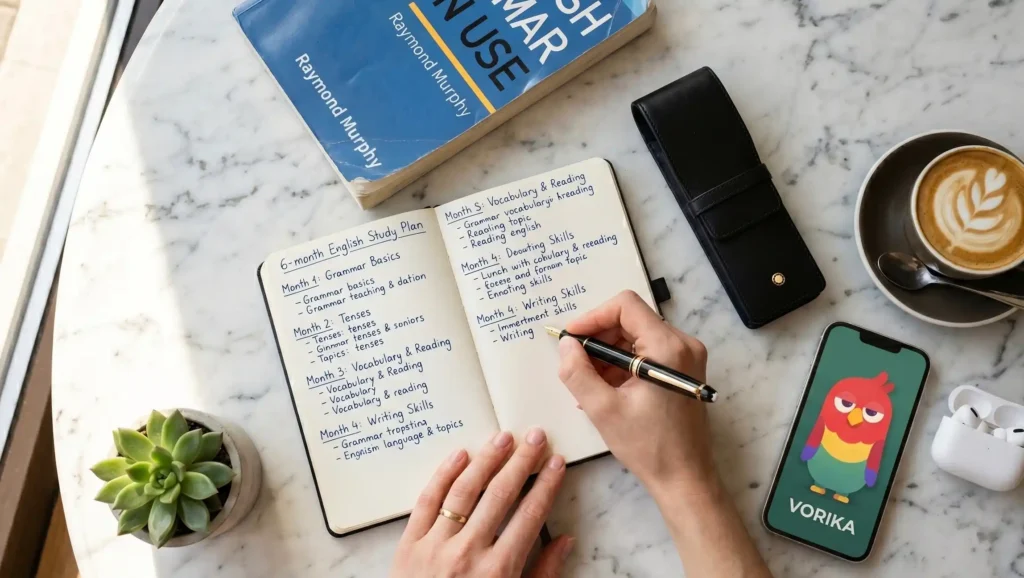 SH
MAR
IN USE
Raymond Murphy
Raymond Murphy
6-month English Study Plan
Month 1: Grammar Basics
- Grammar basics
- Grammar teaching & dation
Month 2: Tenses
- Tenses: tenses
- Ginmar tenses & soniors
- Tapics: tenses
Month 3: Vocabulary & Reading
- Vocabulary & Reading
- Vocabulary & reading
Month 4: Writing Skills
- Grammar tropsting
- Engnism language & topics
Month 5: Vocabulary & Reading
- Grammar vocabulary & hreading
- Reaoling topic
- Reading english
Month 4: Deouting Skills
- Lunch with cobulary & reading
- foeese and fornain topic
- Ennoting skills
Month 4: Writing Skills
- Immertment skills
- Writing
VORIKA